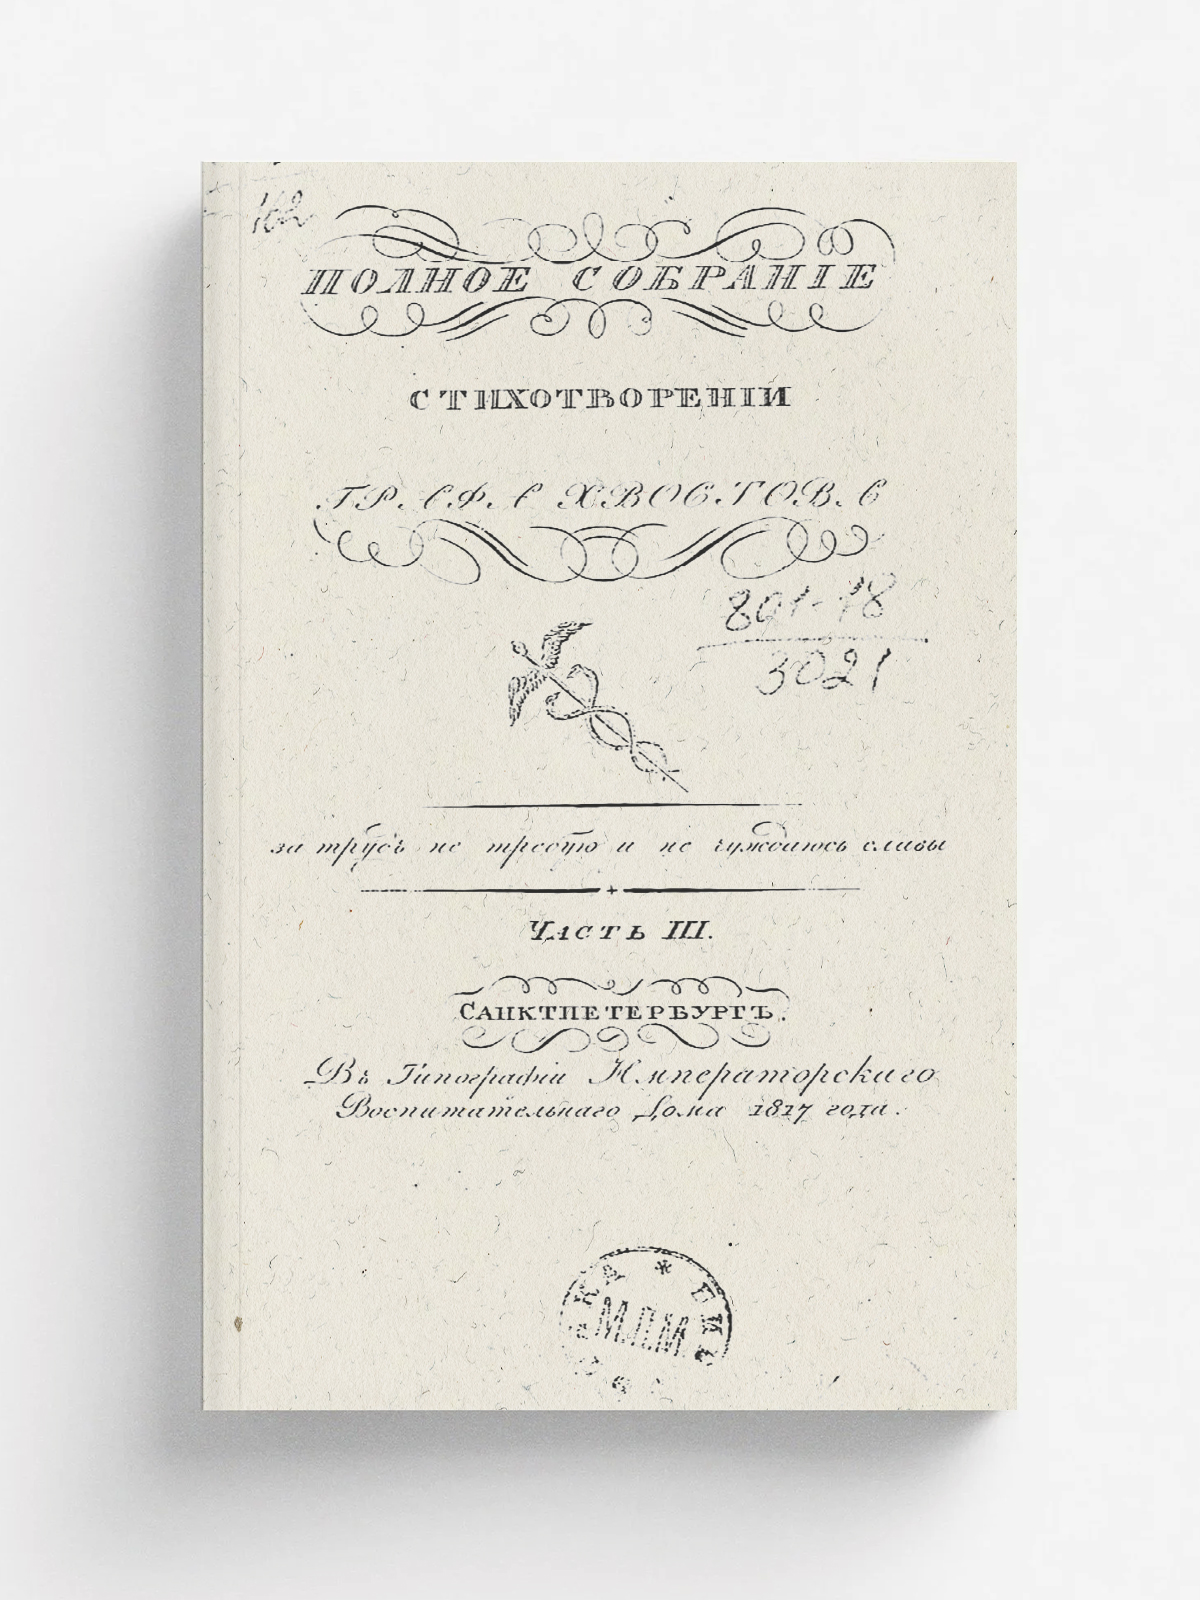 162
ПОЛНОЕ СОБРАНІЕ
СТИХОТВОРЕНІЙ
ГРАФА ХВОСТОВА
891-18
3021
за трудъ не требую и не чуждаюсь славы
Часть III.
САНКТПЕТЕРБУРГЪ.
Въ Типографіи Императорскаго
Воспитательнаго Дома 1817 года.
М.П.М.